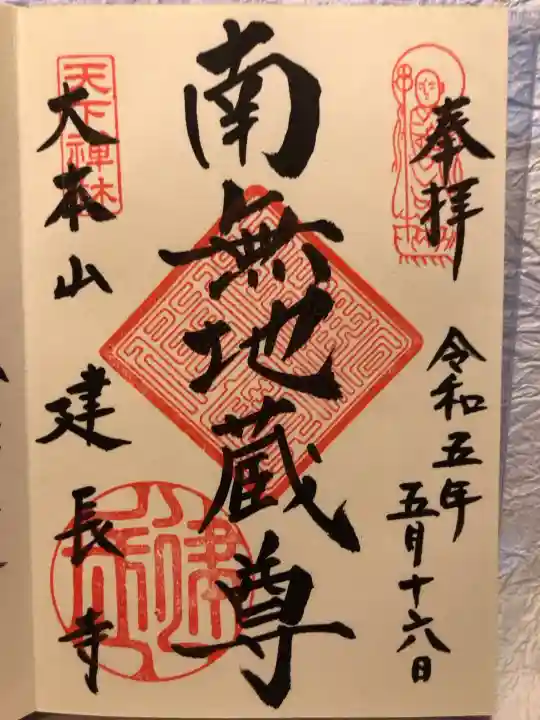 奉拝
令和五年
五月十六日
南無地蔵尊
天下禅林
大本山 建長寺